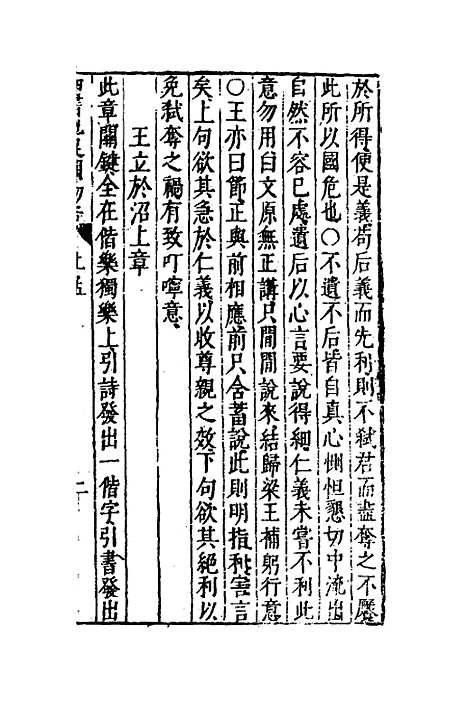 於所得便是義苟后義而先利則不弒君而盡奪之不饜
此所以國危也〇不遺不后皆自真心惻怛懇切中流出
自然不容已處遺后以心言要說得細仁義未嘗不利此
意勿用白文原無正講只閒閒說來結歸梁王補躬行意
〇王亦曰節正與前相應前只含蓄說此則明指利害言
矣上句欲其急於仁義以收尊親之效下句欲其絕利以
免弒奪之禍有致叮嚀意
王立於沼上章
此章關鍵全在偕樂獨樂上引詩發出一偕字引書發出
上孟